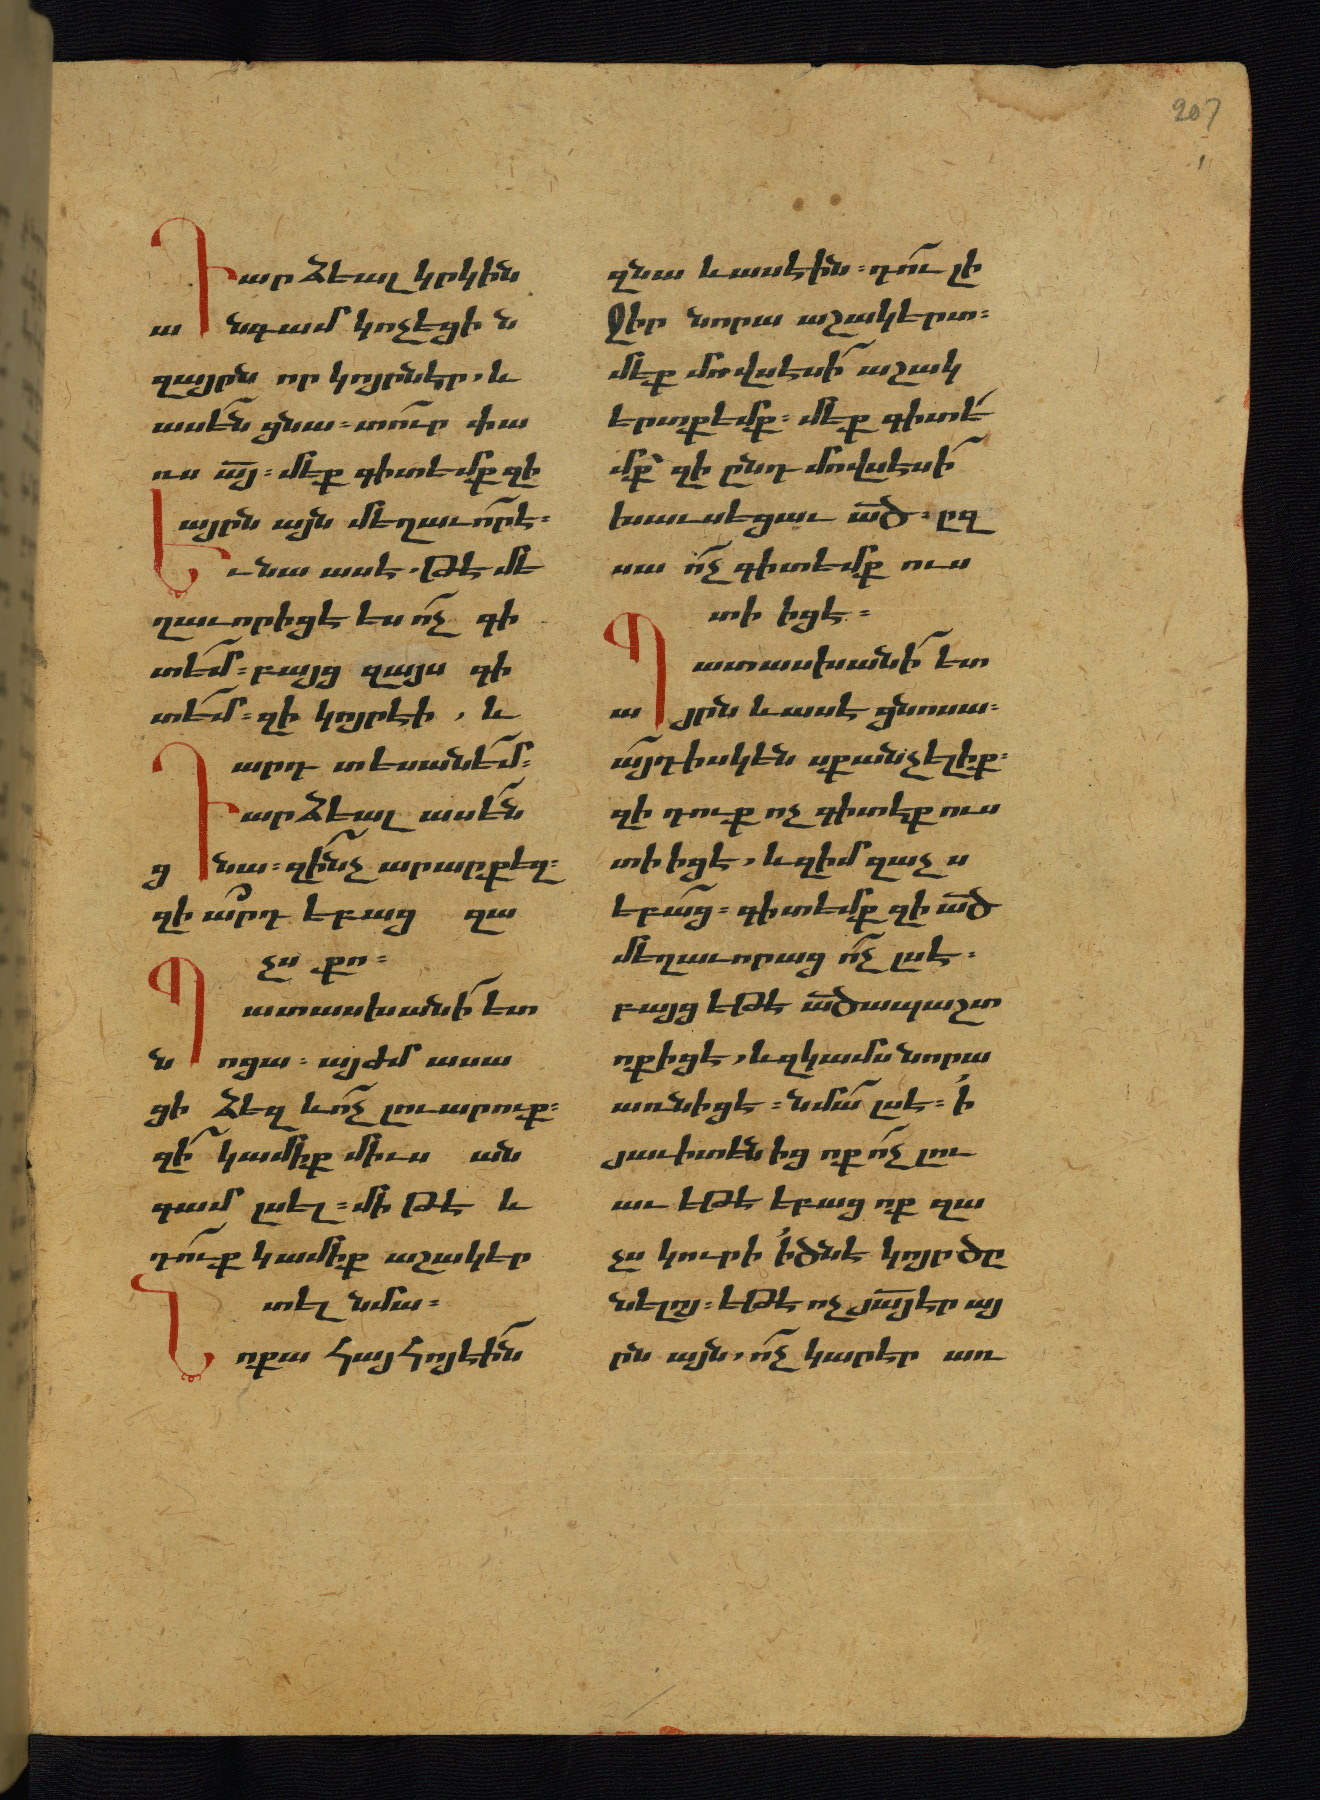 207
Դարձեալ կրկին
անգամ կոչեցին
զայրն որ կոյրն էր, և
ասեն ցնա ։ տուր փա
ռս այ ։ մեք գիտեմք զի
այրն այն մեղաւոր է ։
Եւ նա ասէ, թե մե
ղաւոր իցէ ես ոչ գի
տեմ ։ բայց զայս գի
տեմ ։ զի կոյր էի, և
արդ տեսանեմ ։
Դարձեալ ասեն
ցնա ։ զինչ արար քեզ ։
զիարդ եբաց զա
չս քո ։
Պատասխանի ետ
նոցա ։ այժմ ասա
ցի ձեզ և ոչ լուարուք ։
զի կամիք միւս ան
գամ լսել ։ մի թէ և
դուք կամիք աշակեր
տել նմա ։
Նոքա հայհոյեին
զնա և ասէին ։ դու լի
ջիր նորա աշակերտ ։
մեք մովսէսի աշակ
երտք եմք ։ մեք գիտե
մք՝ զի ընդ մովսէսի
խաւսեցաւ ած ։ բզ
սա ոչ գիտեմք ուս
տի իցէ ։
Պատասխանի ետ
այրն և ասէ ցնոսա ։
այդ իսկ են սքանչելիք ։
զի դուք ոչ գիտէք ուս
տի իցէ, և զիմ զաչս
եբաց ։ գիտեմք զի ած
մեղաւորաց ոչ լսէ ։
բայց եթէ ածապաշտ
ոք իցէ, և զկամս նորա
առնիցէ ։ նմա լսէ ։ ի
յաւիտենից ոք ոչ լու
աւ եթէ եբաց ոք զա
չս կուրի ի ծնէ կոյր ծը
նելոյ ։ եթէ ոչ յայ էր այ
րն այն, ոչ կարէր առ